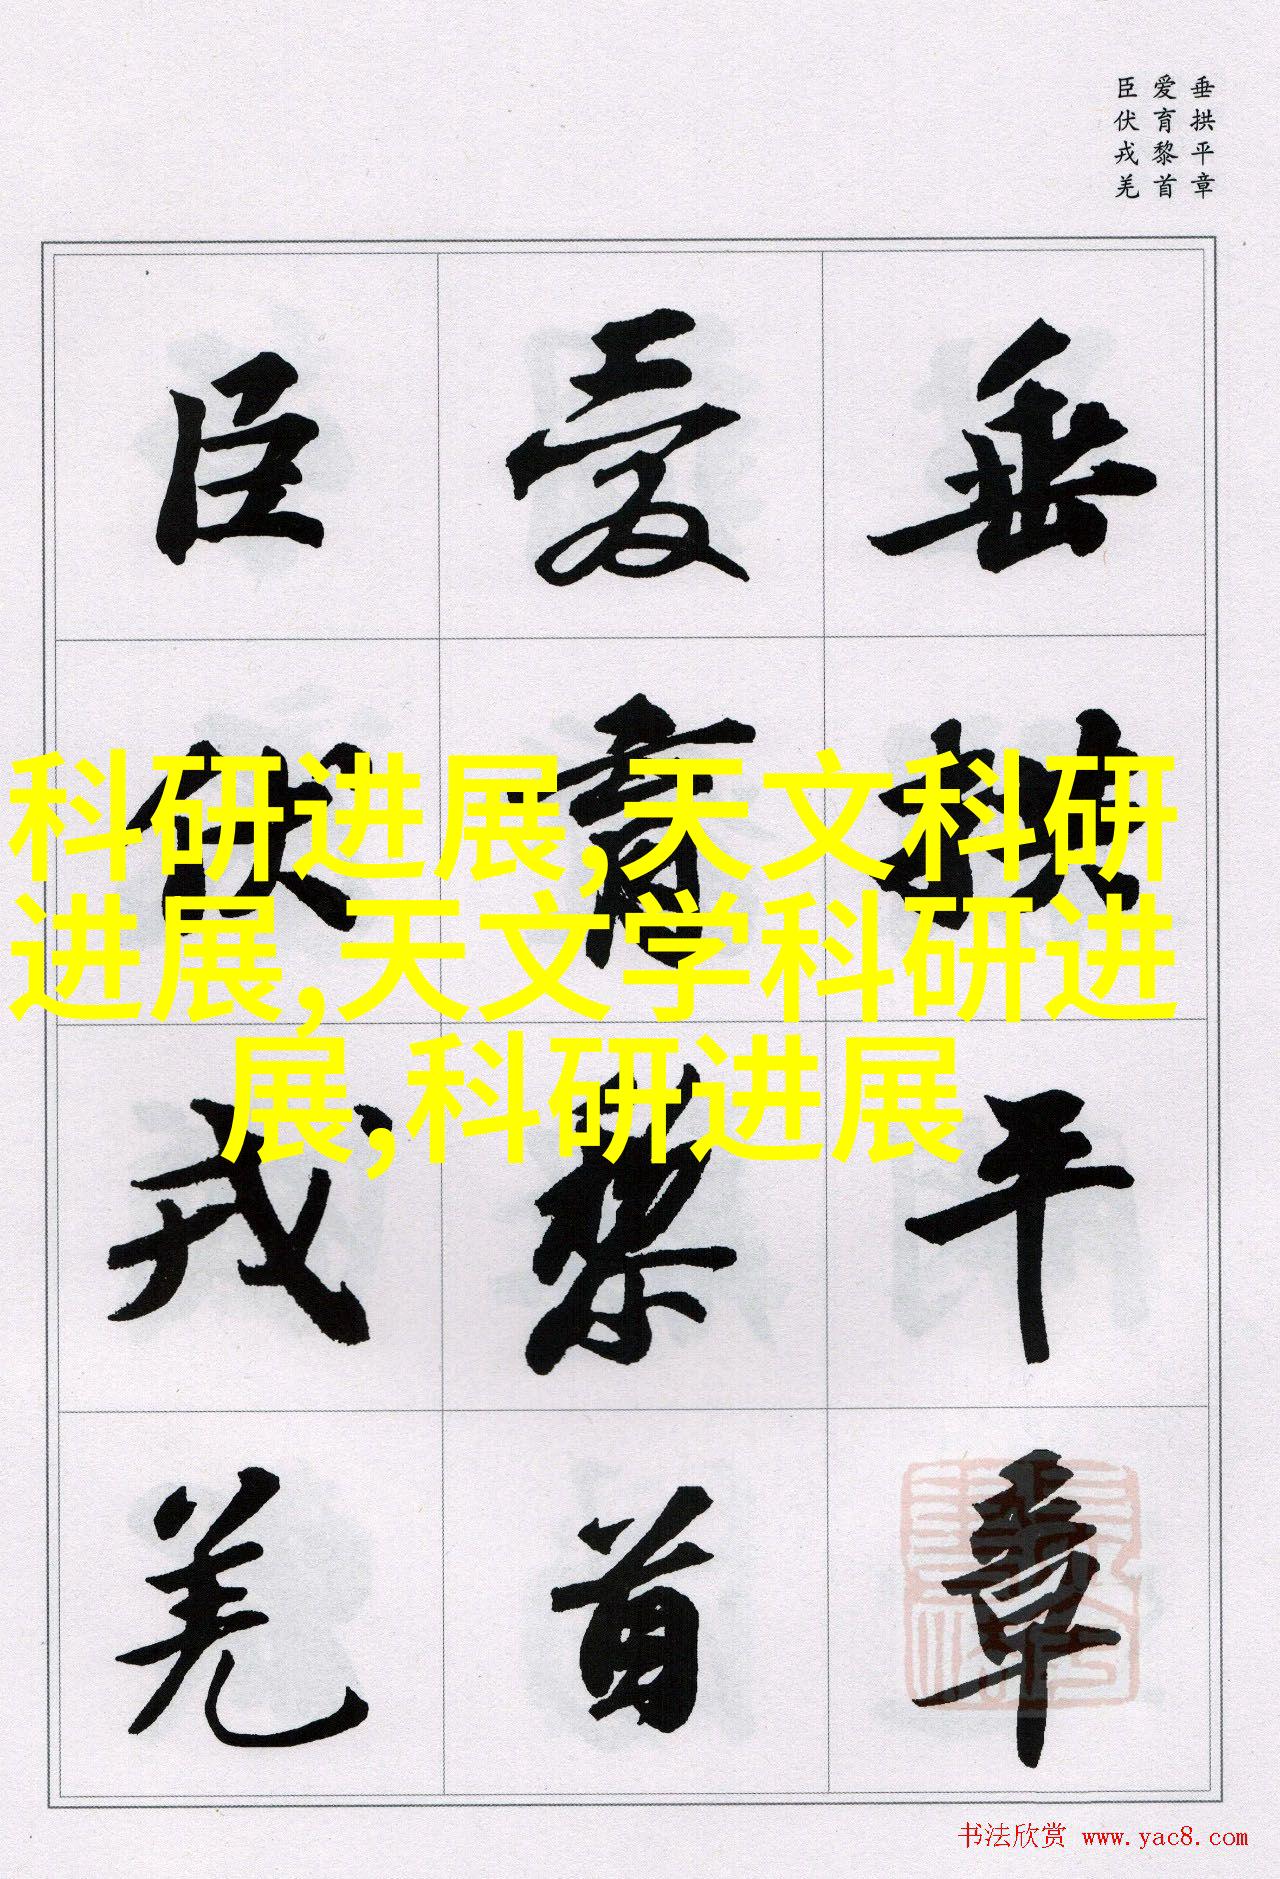 垂拱平章
爱育黎首
臣伏戎羌
垂拱平章
爱育黎首
臣伏戎羌
科研进展,天文科研
进展,天文学科研进
展,科研进展
书法欣赏 www.yac8.com